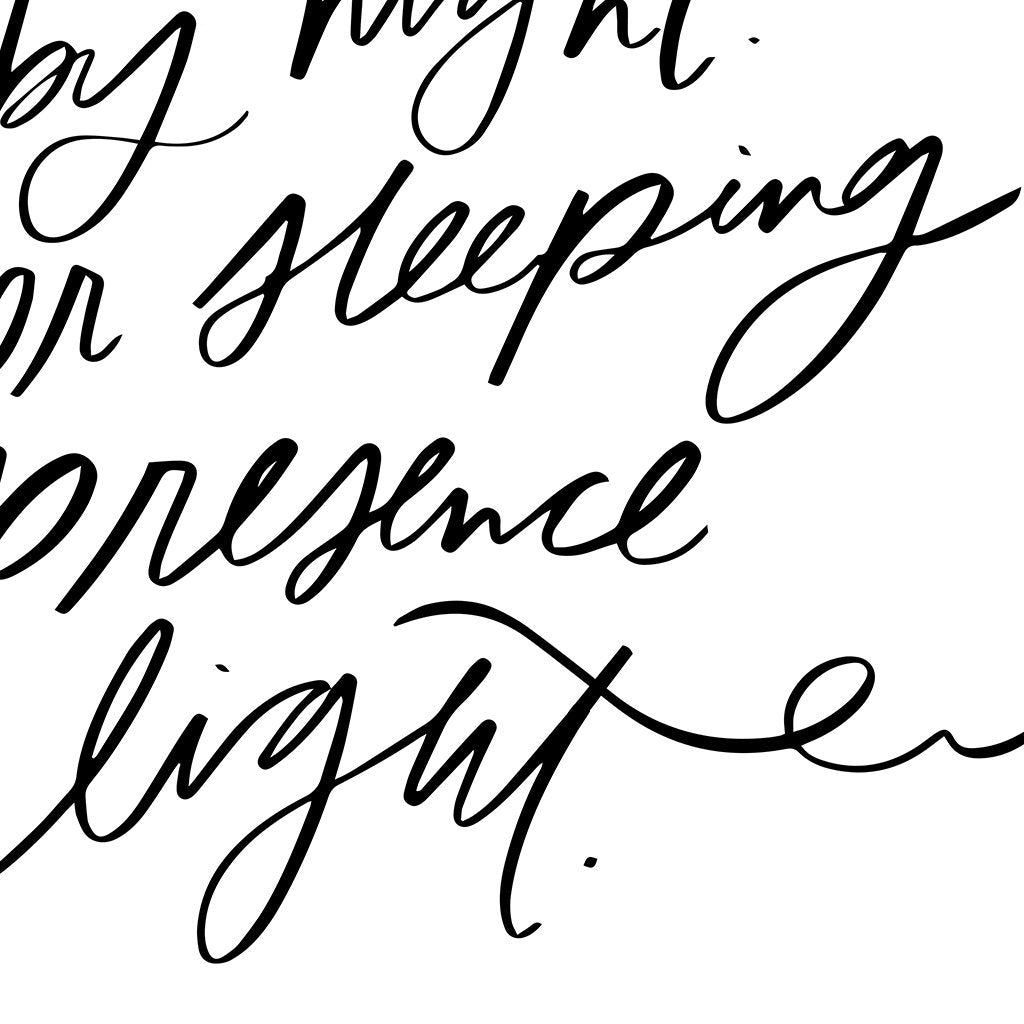 by night.
or sleeping
presence
light.